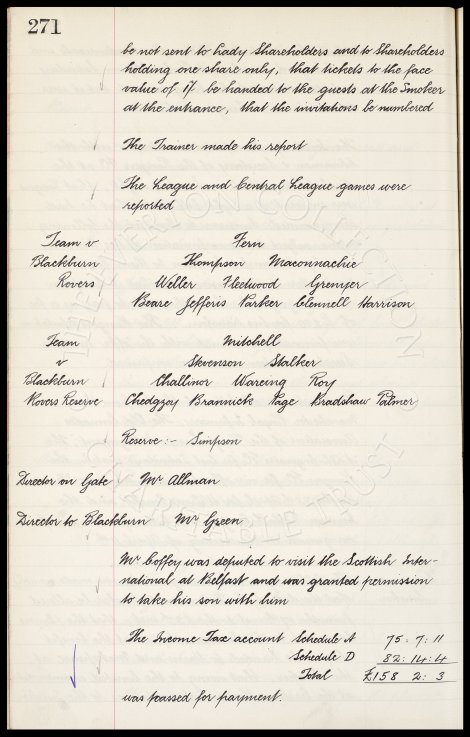 271
be not sent to Lady Shareholders and to Shareholders
holding one share only, that tickets to the face
value of 1/- be handed to the guests at the Smoker
at the entrance, that the invitations be numbered
The Trainer made his report
The League and Central League games were
reported
Team v Fern
Blackburn Thompson Maconnachie
Rovers Weller Fleetwood Grenyer
Beare Jefferis Parker Clennell Harrison
Team Mitchell
v Stevenson Stalker
Blackburn Challinor Wareing Roy
Rovers Reserve Chedgzoy Brannick Page Bradshaw Palmer
Reserve :- Simpson
Director on Gate Mr Allman
Director to Blackburn Mr Green
Mr Coffey was deputed to visit the Scottish Inter-
national at Belfast and was granted permission
to take his son with him
The Income Tax account Schedule A 75 : 7 : 11
Schedule D 82 : 14 : 4
Total £158 2 : 3
was passed for payment.
THE EVERTON COLLECTION
CHARITABLE TRUST